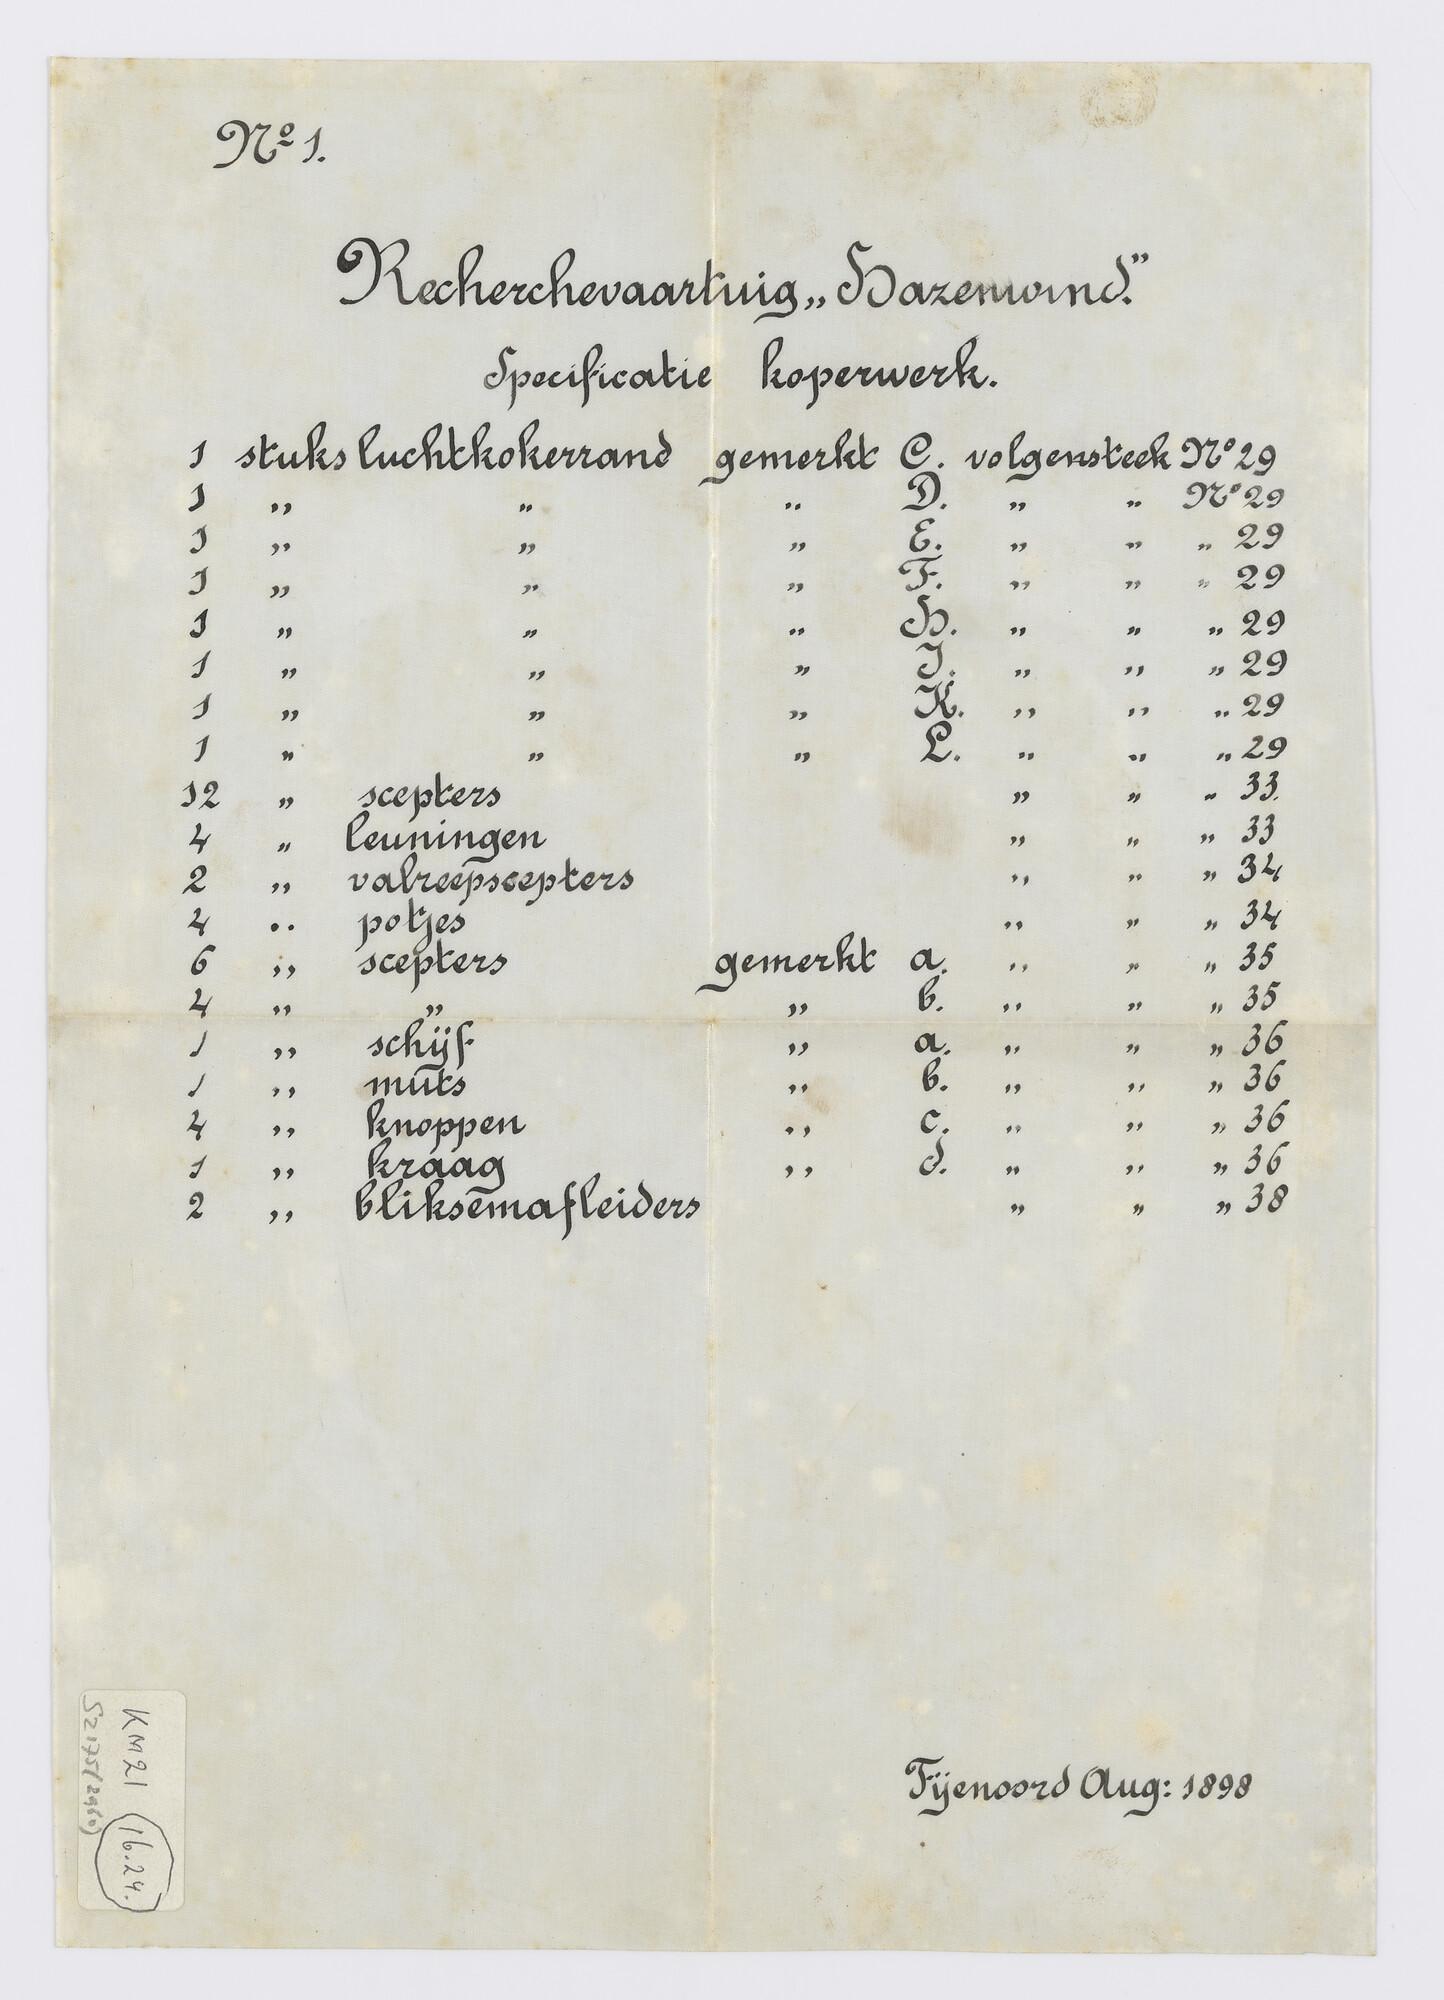 Nº 1.
Recherchevaartuig „Hazenwind."
Specificatie koperwerk.
1 stuks luchtkokerrand gemerkt C. volgensteek Nº 29
1 „ „ „ D. „ „ Nº 29
1 „ „ „ E. „ „ „ 29
1 „ „ „ F. „ „ „ 29
1 „ „ „ H. „ „ „ 29
1 „ „ „ J. „ „ „ 29
1 „ „ „ K. „ „ „ 29
1 „ „ „ L. „ „ „ 29
12 „ scepters „ „ „ 33.
4 „ leuningen „ „ „ 33
2 „ valreepscepters „ „ „ 34
4 „ potjes „ „ „ 34
6 „ scepters gemerkt a. „ „ „ 35
4 „ „ „ b. „ „ „ 35
1 „ schijf „ a. „ „ „ 36
1 „ muts „ b. „ „ „ 36
4 „ knoppen „ c. „ „ „ 36
1 „ kraag „ d. „ „ „ 36
2 „ bliksemafleiders „ „ „ 38
Fijenoord Aug: 1898
KM21 16.24.